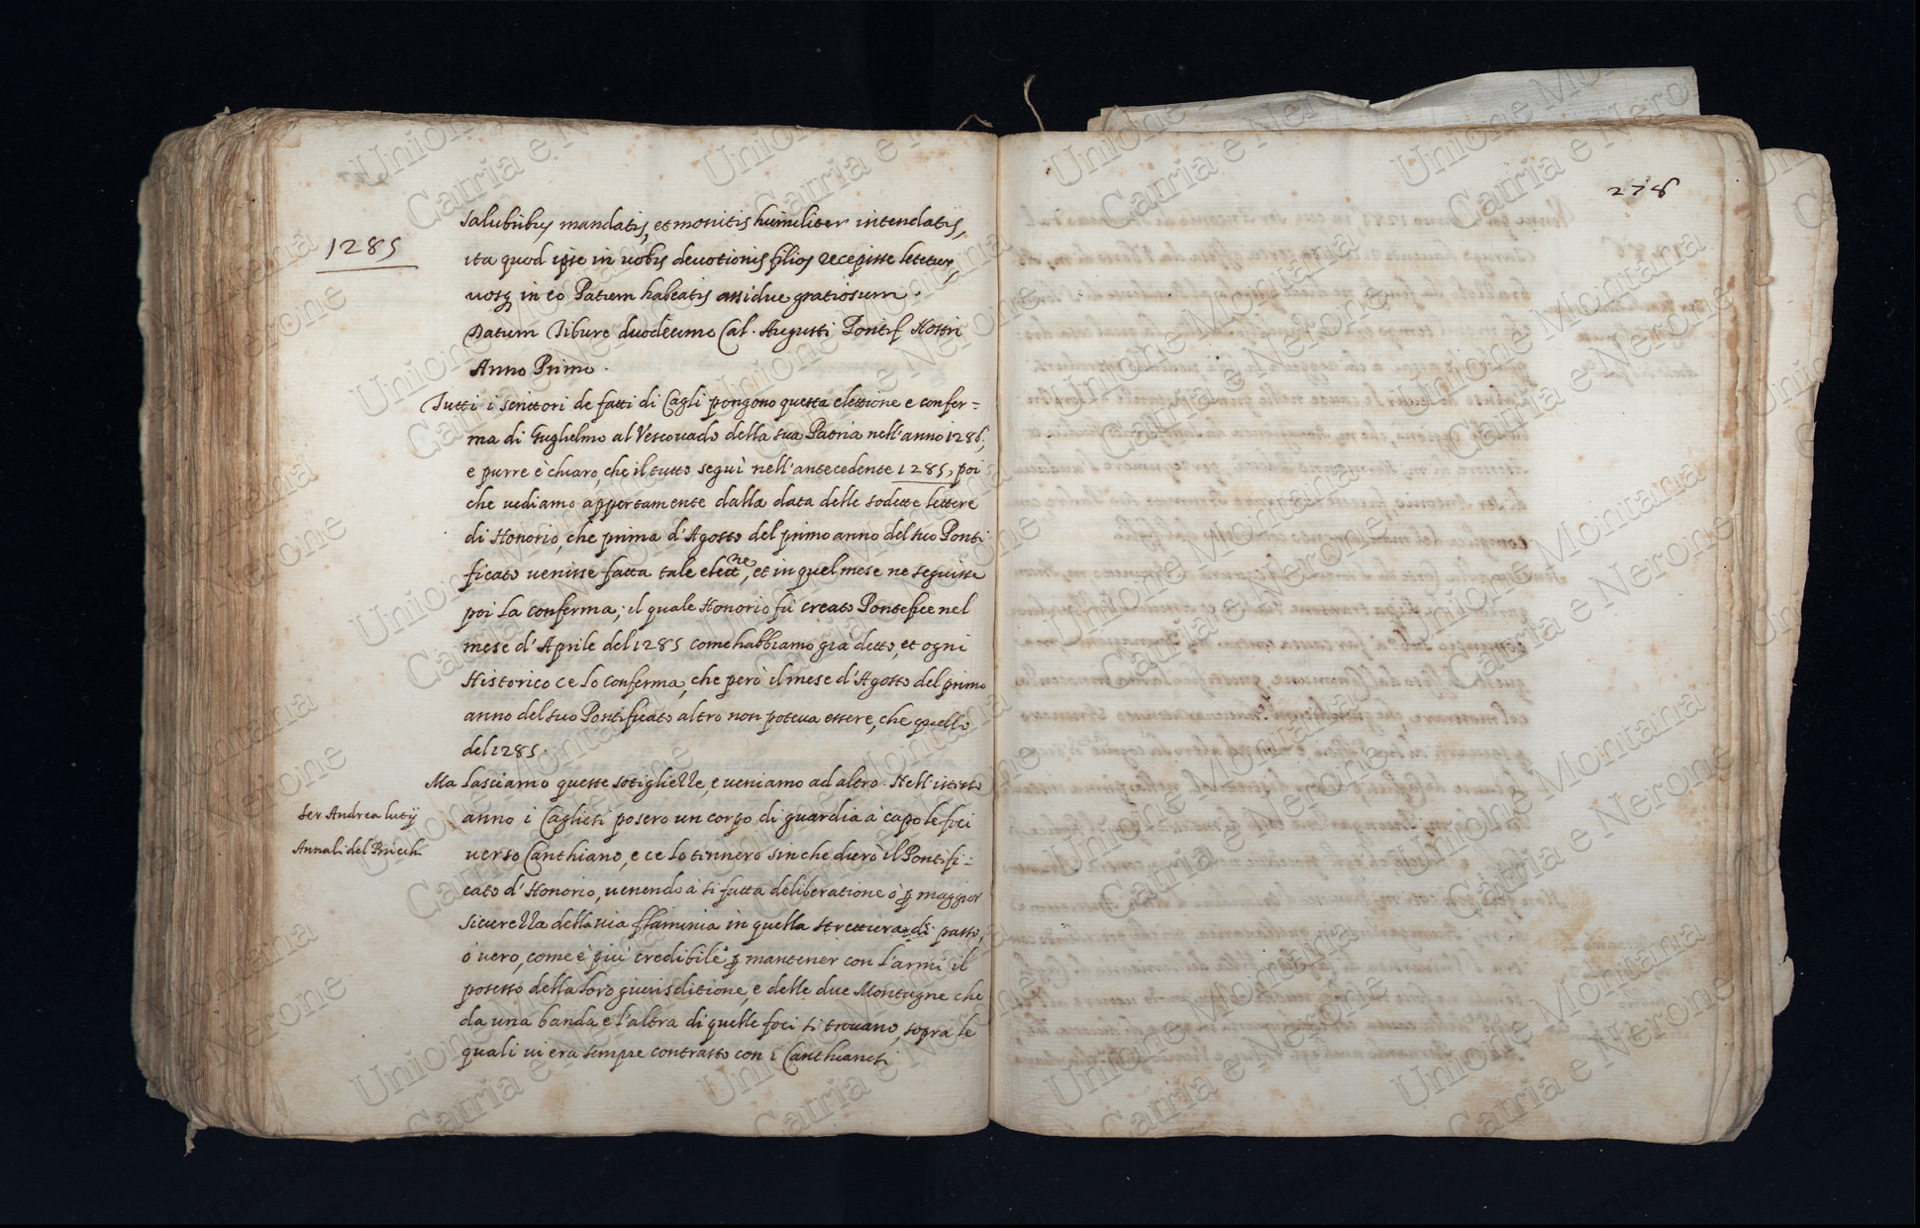 278
1285
salubribus mandatis, et monitis humiliter intendatis,
ita quod ipse in uobis deuotionis filios recepisse letetur,
uosq in eo Patrem habeatis assidue gratiosum.
Datum Tibure duodecimo Cal. Augusti Pontif. Nostri
Anno Primo.
Tutti i scrittori de fatti di Cagli pongono questa elettione e confer=
ma di Guglielmo al Vescouado della sua Patria nell'anno 1286;
e purre è chiaro, che il tutto seguì nell'antecedente 1285, poi
che uediamo appertamente dalla data delle sodette lettere
di Honorio, che prima d'Agosto del primo anno del suo Ponti
ficato uenisse fatta tale elettne, et in quel mese ne seguisse
poi la conferma; il quale Honorio fù creato Pontefice nel
mese d'Aprile del 1285 come habbiamo già detto, et ogni
Historico ce lo conferma, che però il mese d'Agosto del primo
anno del suo Pontificato altro non poteua essere, che quello
del 1285.
Ma lasciamo queste sotigliezze, e ueniamo ad altro. Nell'istesso
Ser Andrea lutij
anno i Cagliesi posero un corpo di guardia à capo le foci
Annali del Bricch.
uerso Canthiano, e ce lo tinnero sin che durò il Pontifi=
cato d'Honorio, uenendo à si fatta deliberatione ò p maggior
sicurezza della uia flaminia in quella strettura di passo,
ò uero, come è più credibile p mantener con l'armi il
posesso della loro giurisditione, e delle due Montagne che
da una banda e l'altra di quelle foci si trouano, sopra le
quali ui era sempre contrasto con i Canthianesi
Unione Montana
Catria e Nerone